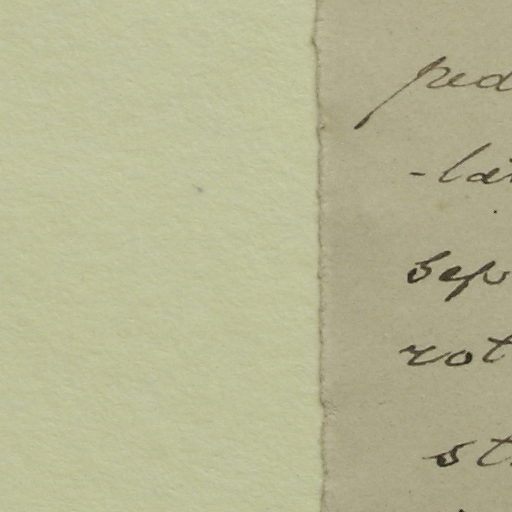 ped
-la
sep
rot
st